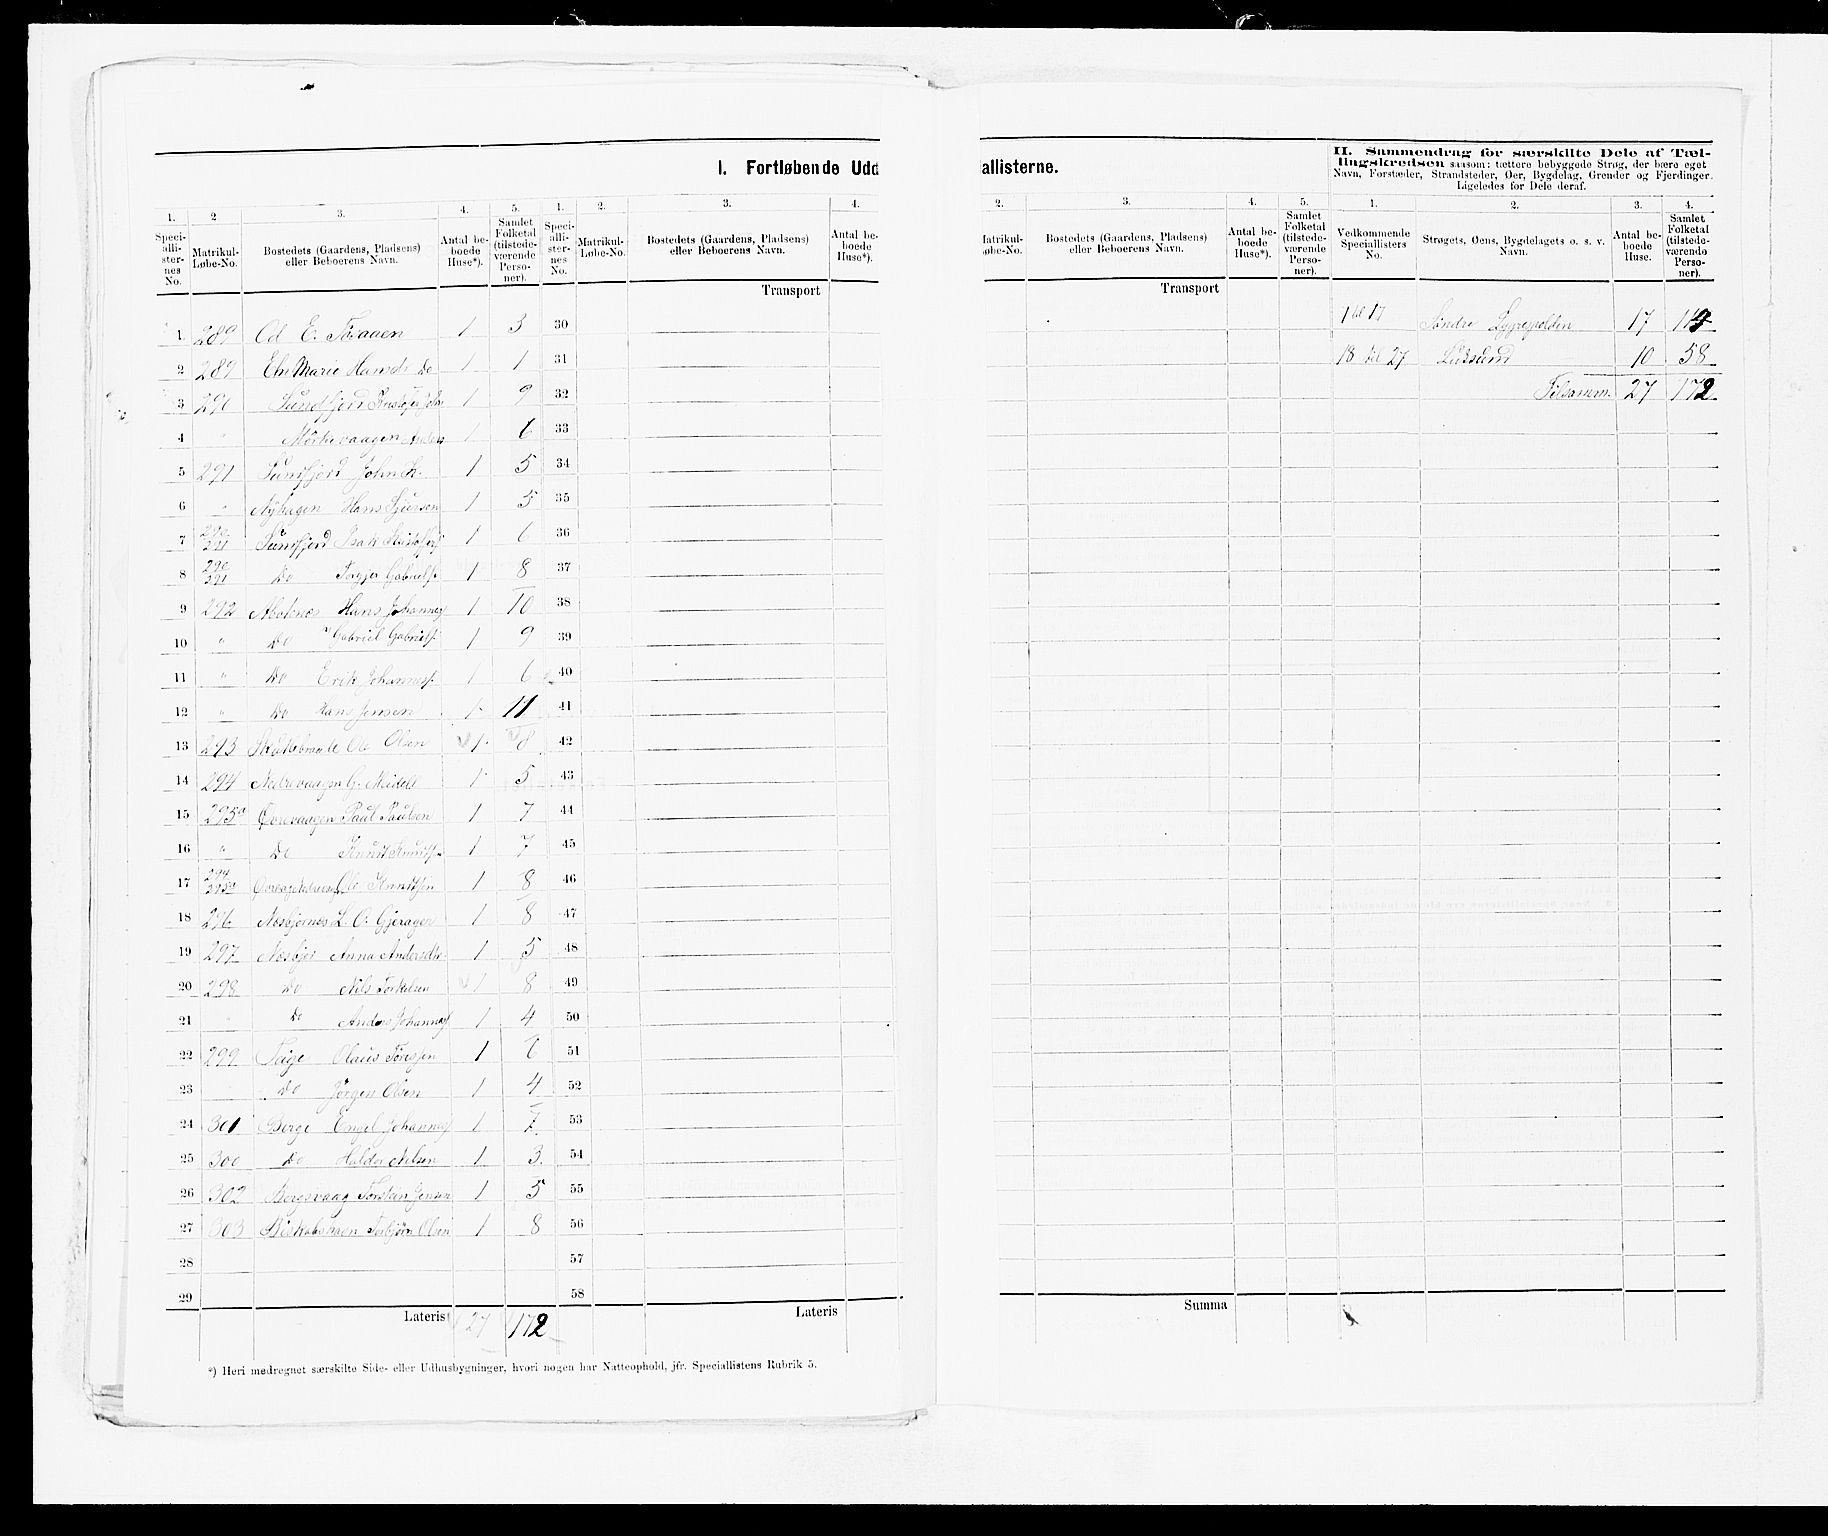 I. Fortløbende Udd
allisterne.
II. Sammendrag for særskilte Dele af Tæl-
lingskredsen saasom: tættere bebyggede Strøg, der bære eget
Navn, Forstæder, Strandsteder, Øer, Bygdelag, Grender og Fjerdinger.
Ligeledes for Dele deraf.
1. 2 3. 4. 5. 1. 2. 3. 4.
Speciallisternes No. Matrikul-Løbe-No. Bostedets (Gaardens, Pladsens) eller Beboerens Navn. Antal beboede Huse*). Samlet Folketal (tilstedeværende Personer). Speciallisternes No. Matrikul-Løbe-No. Bostedets (Gaardens, Pladsens) eller Beboerens Navn. Antal beboede Huse*).
2. 3. 4. 5. 1. 2. 3. 4.
Matrikul-Løbe-No. Bostedets (Gaardens, Pladsens) eller Beboerens Navn. Antal beboede Huse*). Samlet Folketal (tilstedeværende Personer). Vedkommende Speciallisters No. Strøgets, Øens, Bygdelagets o. s. v. Navn. Antal beboede Huse. Samlet Folketal (tilstedeværende Personer).
Transport
Transport
1 289 Od E. 1 3 30
2 289 Marie Do 1 1 31
3 290 Sundfjord 1 9 32
4 " Mörkevaagen 1 6 33
5 291 Sundfjord John K. 1 5 34
6 " Nyhagen Hans 1 5 35
7 290 291 Sundfjord 1 6 36
8 290 291 Do Gabriels. 1 8 37
9 292 Hans Johannes 1 10 38
10 " Do Gabriel Gabriels. 1 9 39
11 " Do Erik Johanness. 1 6 40
12 " Do Hans Jensen 1 11 41
13 293 Ole Olsen 1 8 42
14 294 Nedrevaagen G. 1 5 43
15 295a Øvrevaagen Paul Paulsen 1 7 44
16 " Do Knud Knudsen 1 7 45
17 294 295a Ole Knudsen 1 8 46
18 296 Næsbjørnes L. O. Gjerager 1 8 47
19 297 Anna Andersdtr 1 5 48
20 298 Do Nils Torkelsen 1 8 49
21 " Do Anders Johannes 1 4 50
22 299 Teige Olaus 1 6 51
23 Do Jörgen Olsen 1 4 52
24 301 Berge Engel Johannes 1 7 53
25 300 Do Haldor Nilsen 1 3 54
26 302 Bergsvaag Torstein Jensen 1 5 55
27 303 Torbjörn Olsen 1 8 56
28 57
29 58
Lateris 27 172
Lateris
1 til 17 Söndre 17 114
18 til 27 10 58
Tilsamm. 27 172
Summa
*) Heri medregnet særskilte Side- eller Udhusbygninger, hvori nogen har Natteophold, jfr. Speciallistens Rubrik 5.